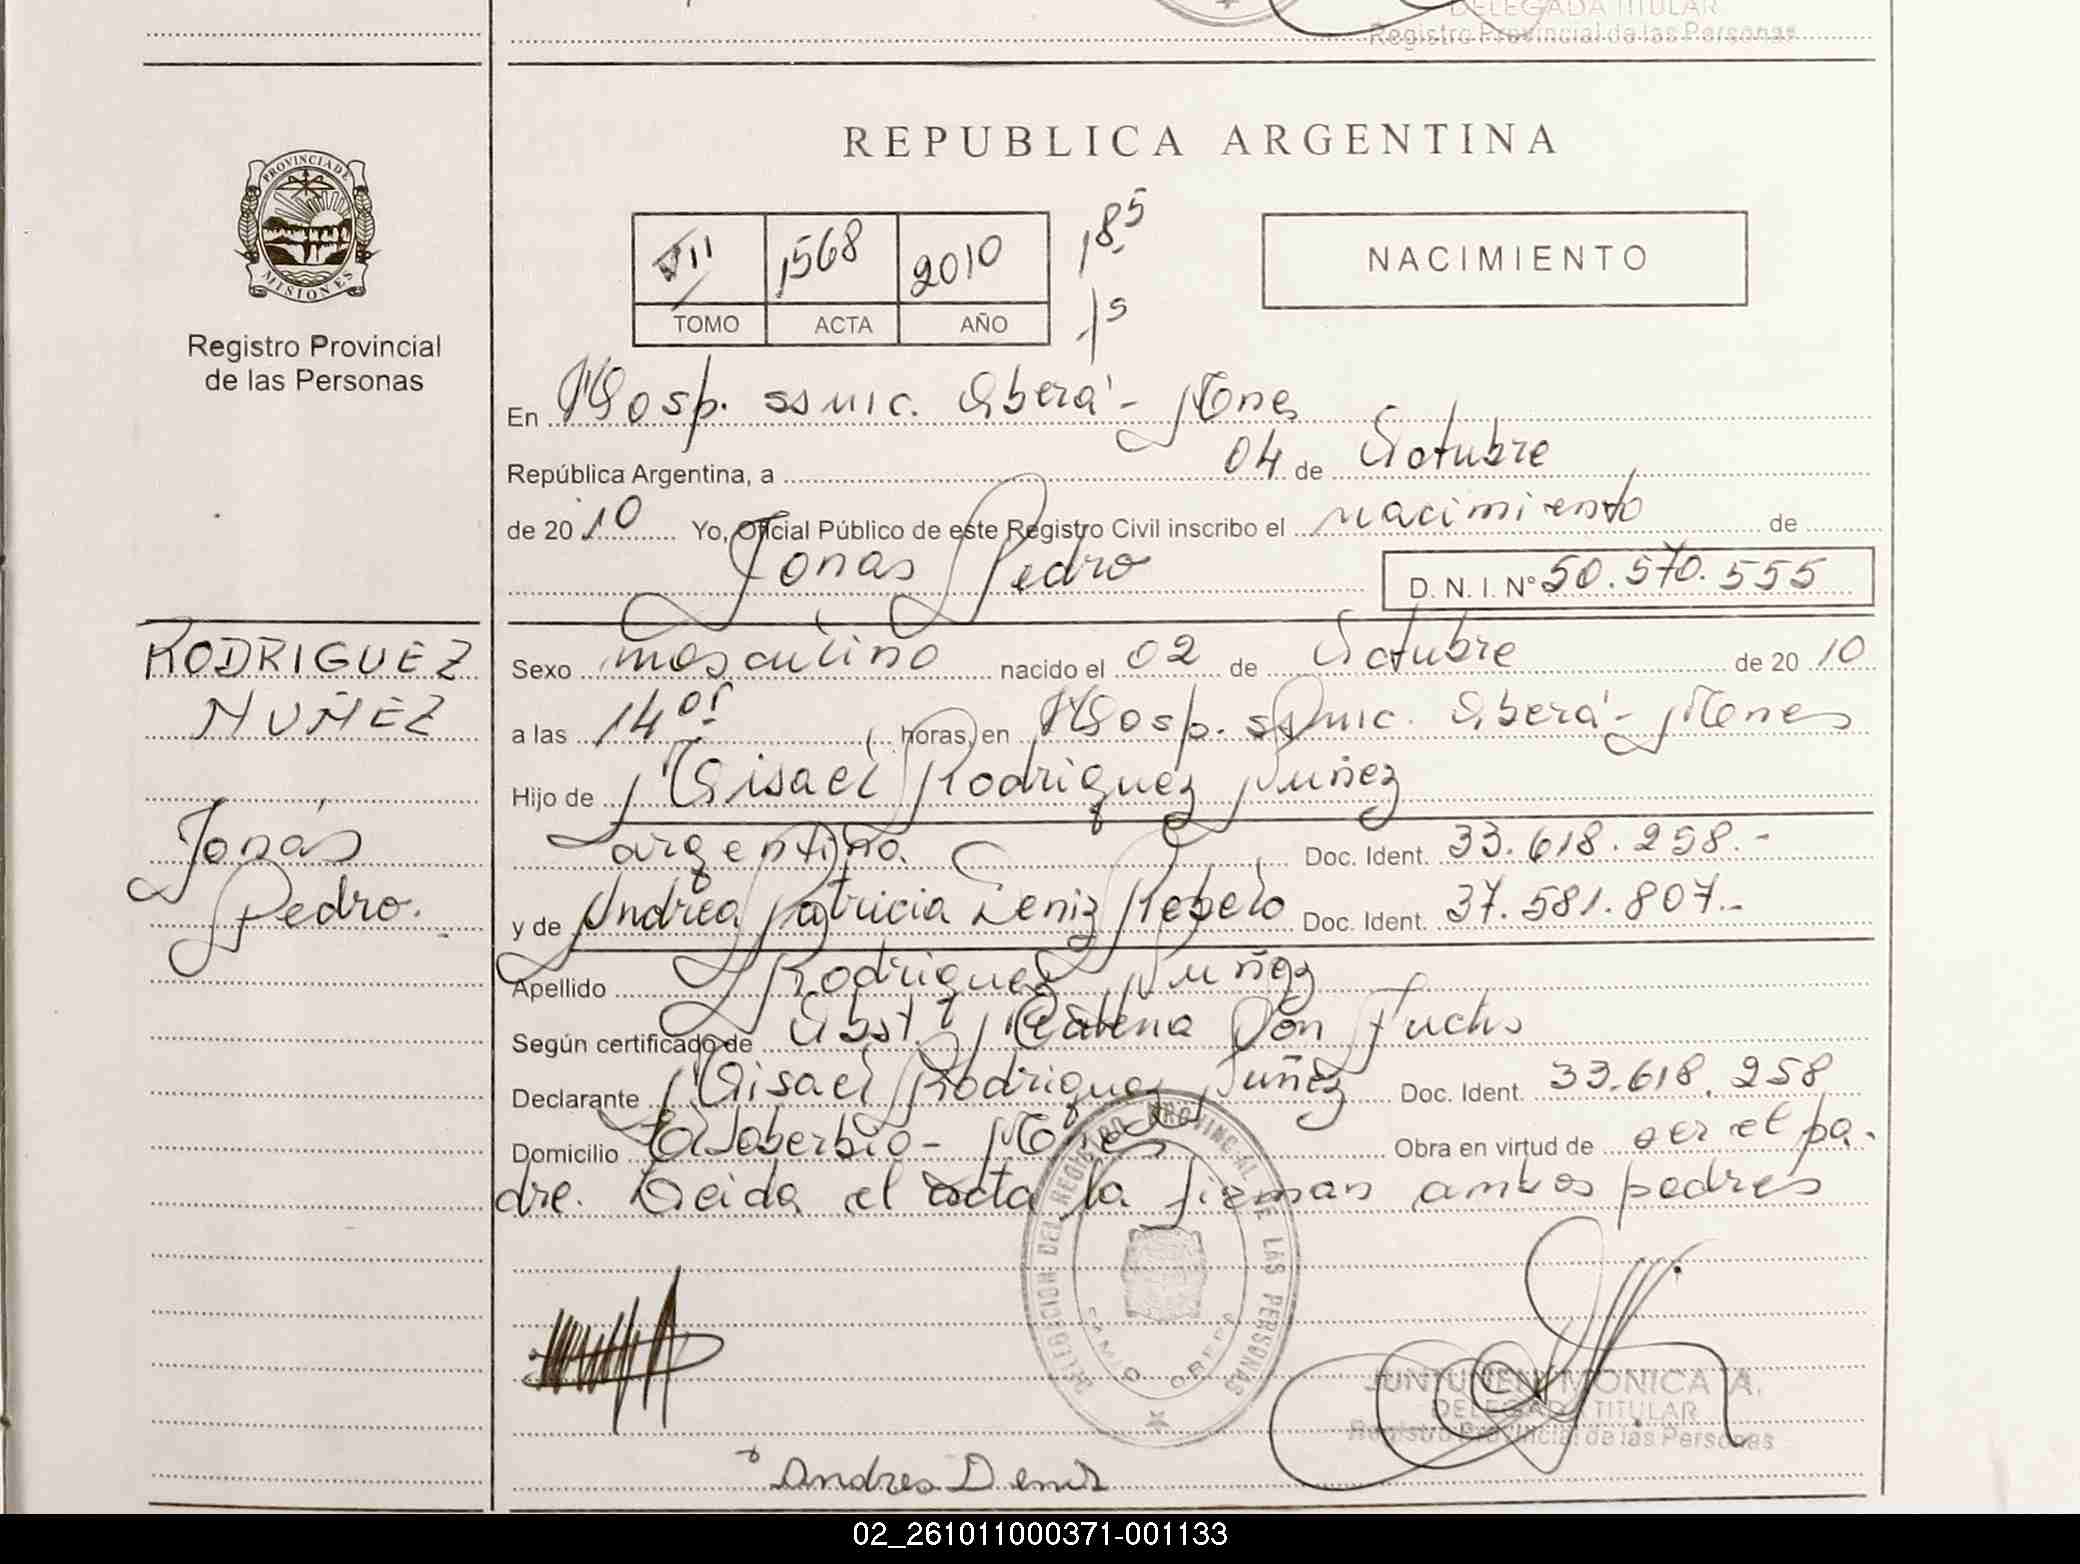 DELEGADA TITULAR
Registro Provincial de las Personas
PROVINCIA DE
MISIONES
Registro Provincial
de las Personas
REPUBLICA ARGENTINA
1568 2010
TOMO ACTA AÑO
NACIMIENTO
En Hosp. ssmic. Oberá - Mnes
República Argentina, a 04 de Octubre
de 2010 Yo, Oficial Público de este Registro Civil inscribo el nacimiento de
Jonas Pedro D. N. I. N° 50.570.555
RODRIGUEZ
NUÑEZ
Jonás
Pedro.
Sexo masculino nacido el 02 de Octubre de 2010
a las 14 horas, en Hosp. ssmic. Oberá - Mnes
Hijo de Misael Rodriguez Nuñez
argentino. Doc. Ident. 33.618.258.-
y de Andrea Patricia Deniz Rebelo Doc. Ident. 37.581.807.-
Apellido Rodriguez Nuñez
Según certificado de Obst. Von Fuchs
Declarante Misael Rodriguez Nuñez Doc. Ident. 33.618.258
Domicilio El Soberbio - Mnes Obra en virtud de ser el pa-
dre. Leida el acta la firman ambos padres
DELEGACION DEL REGISTRO PROVINCIAL DE LAS PERSONAS
JUNTUNEN MONICA A.
DELEGADA TITULAR
Registro Provincial de las Personas
Andrea Deniz
02_261011000371-001133